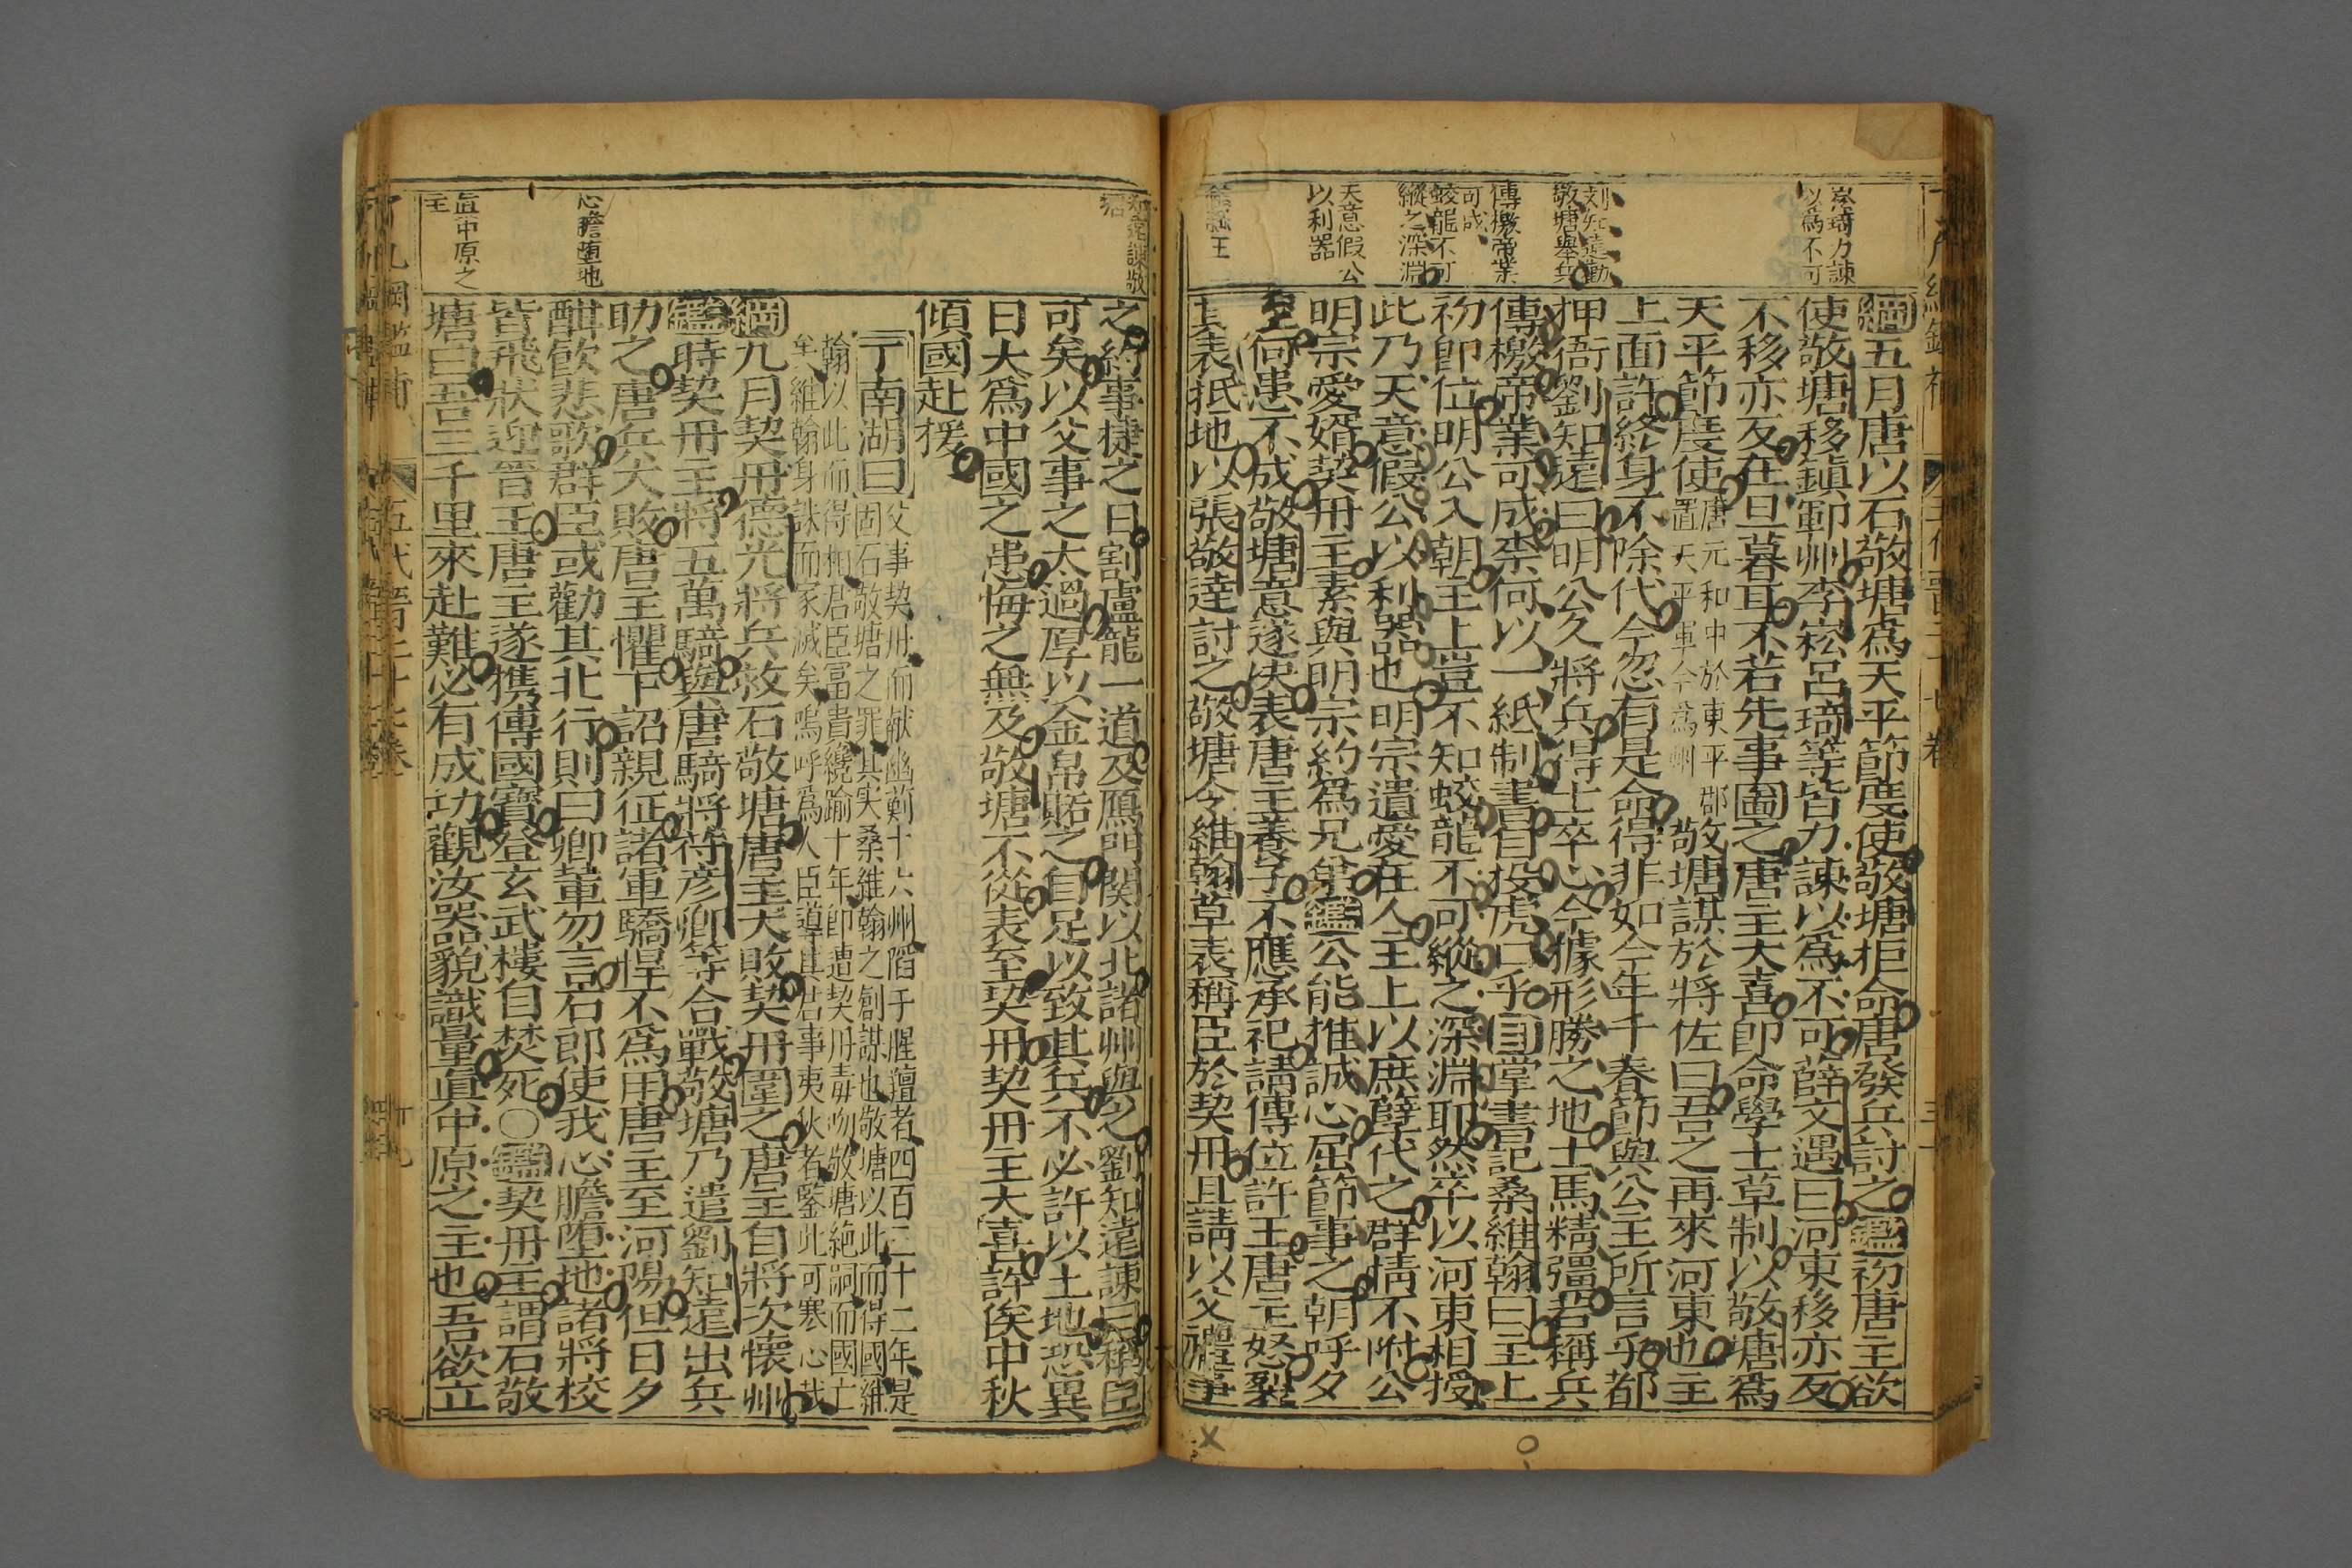 崔琦力諫
以爲不可
刘知遠勸
敬塘舉兵
傳檄帝業
可成
蛟龍不可
縱之深淵
天意假公
以利器
綱五月唐以石敬塘爲天平節度使敬塘拒命唐發兵討之鑑初唐主欲
使敬塘移鎮鄆州李崧呂琦等皆力諫以爲不可薛文遇曰河東移亦反
不移亦反在旦暮耳不若先事圖之唐主大喜卽命學士草制以敬塘爲
天平節度使唐元和中於東平郡置天平軍今爲州敬塘謀於將佐曰吾之再來河東也主
上面許終身不除代今忽有是命得非如今年千春節與公主所言乎都
押衙劉知遠曰明公久將兵得士卒心今據形勝之地士馬精彊若稱兵
傳檄帝業可成柰何以一紙制書自投虎口乎目掌書記桑維翰曰主上
初卽位明公入朝主上豈不知蛟龍不可縱之深淵耶然卒以河東相授
此乃天意假公以利器也明宗遺愛在人主上以庶孽代之群情不附公
明宗愛婿契丹主素與明宗約爲兄弟鑑公能推誠心屈節事之朝呼夕
至何患不成敬塘意遂决表唐主養子不應承祀請傳位許王唐主怒裂
其表抵地以張敬達討之敬塘令維翰草表稱臣於契丹且請以父禮事
知遠諫敬
塘
心膽墮地
眞中原之
主
之約事捷之日割盧龍一道及鴈門関以北諸州與之劉知遠諫曰稱臣
可矣以父事之太過厚以金帛賂之自足以致其兵不必許以土地恐異
日大爲中國之患悔之無及敬塘不從表至契丹契丹王大喜許俟中秋
傾國赴援
丁南湖曰父事契丹而献幽薊十六州陷于腥羶者四百三十二年是
固石敬塘之罪其实桑維翰之創謀也敬塘以此而得國維
翰以此而得相君臣冨貴纔踰十年卽遭契丹毒吻敬塘絶嗣而國亡
矣維翰身誅而家滅矣嗚呼爲人臣導其君事夷狄者鑒此可寒心哉
綱九月契丹德光將兵救石敬塘唐主大敗契丹圍之唐主自將次懷州
鑑時契丹主將五萬騎與唐騎將符彦卿等合戰敬塘乃遣劉知遠出兵
助之唐兵大敗唐主懼下詔親征諸軍驕悍不爲用唐主至河陽但日夕
酣飮悲歌群臣或勸其北行則曰卿輩勿言石郎使我心膽墮地諸將校
皆飛狀迎晉王唐主遂携傳國寶登玄武樓自焚死○鑑契丹主謂石敬
塘曰吾三千里來赴難必有成功觀汝器貌識量眞中原之主也吾欲立